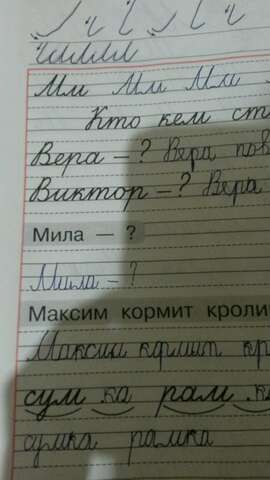 Мм Мм Мм
Кто кем ст
Вера – ? Вера пов
Виктор – ? Вера
Мила — ?
Мила – ?
Максим кормит кроли
Максим кормит кр
сум ка рам ка
сумка рамка